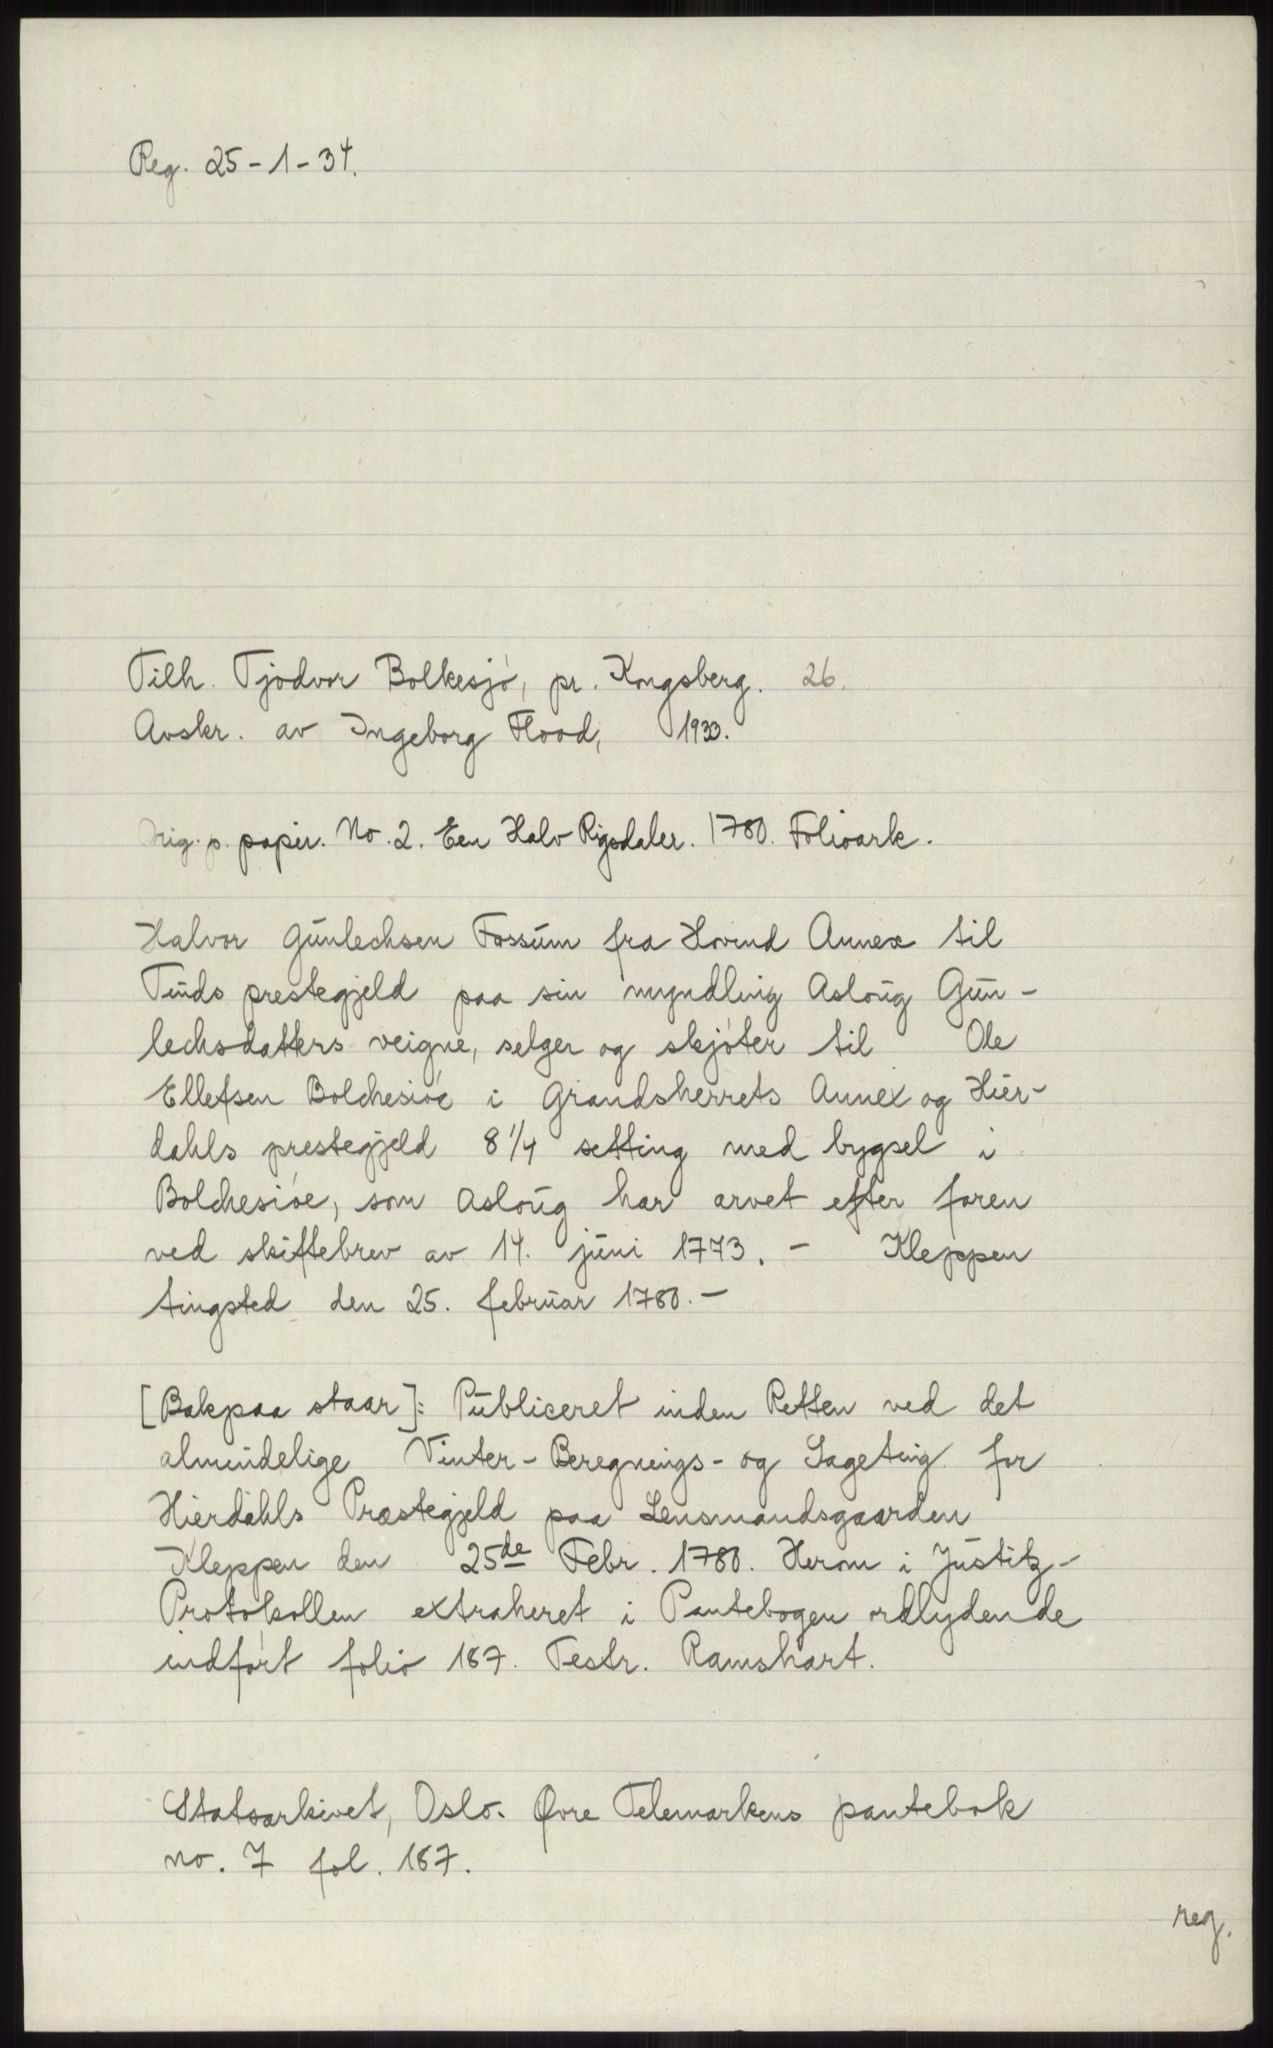 Reg. 25-1-34.
Tilh. Tjodvor Bolkesjó, pr. Kongsberg. 26.
Avskr. av Ingeborg Flood, 1933.
Orig. p. papir. No. 2. Een Halv Rigsdaler. 1780. Folioark.
Halvor Gŭnlechsen Fossŭm fra Hovind Annex til
Tinds prestegjeld paa sin myndling Asloŭg Gŭn-
lechsdatters veigne, selger og skjóter til Ole
Ellefsen Bolchesióe i Grandsherrets Annex og Hier-
dahls prestegjeld 8 1/4 setting med bygsel i
Bolchesióe, som Asloŭg har arvet efter faren
ved skiftebrev av 14. jŭni 1773. - Kleppen
tingsted den 25. februar 1780. -
[Bakpaa staar]: Pŭbliceret inden Retten ved det
almindelige Vinter- Beregnings- og Sageting for
Hierdahls Præstegjeld paa Lensmandsgaarden
Kleppen den 25de Febr. 1780. Herom i Jŭstitz-
Protokollen extraheret i Pantebogen ordlydende
indfórt folio 187. Testr. Ramshart.
Statsarkivet, Oslo. Øvre Telemarkens pantebok
no. 7 fol. 187.
reg.